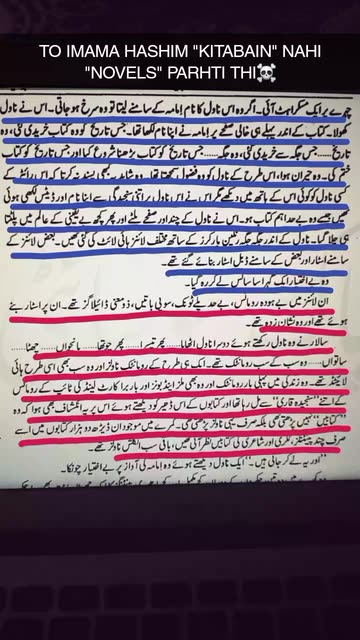 TO IMAMA HASHIM "KITABAIN" NAHI
"NOVELS" PARHTI THI☠️
چہرے پر ایک مسکراہٹ آئی۔ اگر وہ اس ناول کا نام امامہ کے سامنے لیتا تو وہ سرخ ہو جاتی۔ اس نے ناول
کھولا۔ کتاب کے اندر پہلے ہی خالی صفحے پر امامہ نے اپنا نام لکھا تھا۔ جس تاریخ کو وہ کتاب خریدی گئی، وہ
تاریخ...... جس جگہ سے خریدی گئی، وہ جگہ...... جس تاریخ کو کتاب پڑھنا شروع کیا اور جس تاریخ کو کتاب
ختم کی۔ وہ حیران ہوا، اس طرح کے ناول کو وہ فضول سمجھتا تھا۔ وہ شاید یہ بھی پسند نہ کرتا کہ اس رائٹر کے
کسی ناول کو کوئی اس کے ہاتھ میں دیکھے مگر اس نے اس ناول پر اتنی سنجیدگی سے اپنا نام اور ڈیٹس لکھی ہوئی
تھیں جیسے وہ بے حد اہم کتاب ہو۔ اس نے ناول کے چند اور صفحے پلٹے اور پھر کچھ بے یقینی کے عالم میں پلٹتا
ہی چلا گیا۔ ناول کے اندر جگہ جگہ رنگین مارکرز کے ساتھ مختلف لائنز ہائی لائٹ کی گئی تھیں۔ بعض لائنز کے
سامنے اسٹار اور بعض کے سامنے ڈبل اسٹار بنائے گئے تھے۔
وہ بے اختیار ایک گہرا سانس لے کر رہ گیا۔
ان لائنز میں بے ہودہ رومانس، بے حد چیپ ٹونک، سوپی باتیں، ذو معنی ڈائیلاگز تھے۔ ان پر اسٹار بنے
ہوئے تھے اور وہ نشان زدہ تھے۔
سالار نے وہ ناول رکھتے ہوئے دوسرا ناول اٹھایا...... پھر تیسرا...... پھر چوتھا...... پانچواں...... چھٹا......
ساتواں...... وہ سب کے سب رومانٹک تھے۔ ایک ہی طرح کے رومانٹک ناولز اور وہ سب بھی اسی طرح ہائی
لائیٹڈ تھے۔ وہ زندگی میں پہلی بار رومانٹک اور وہ بھی ملز اینڈ بونز اور باربرا کارٹ لینڈ کی ٹائپ کے رومانس
کے اتنے "سنجیدہ قاری" سے مل رہا تھا اور کتابوں کے اس ڈھیر کو دیکھتے ہوئے اس پر یہ انکشاف بھی ہوا کہ وہ
"کتابیں" نہیں پڑھتی تھی بلکہ صرف یہی ناولز پڑھتی تھی۔ کمرے میں موجود ان ڈیڑھ دو ہزار کتابوں میں اسے
صرف چند پینٹنگز، ککری اور شاعری کی کتابیں نظر آئی تھیں، باقی سب انگلش ناولز تھے۔
"اور یہ لے کر جانی ہیں۔" ایک ناول دیکھتے ہوئے وہ امامہ کی آواز پر بے اختیار چونکا۔